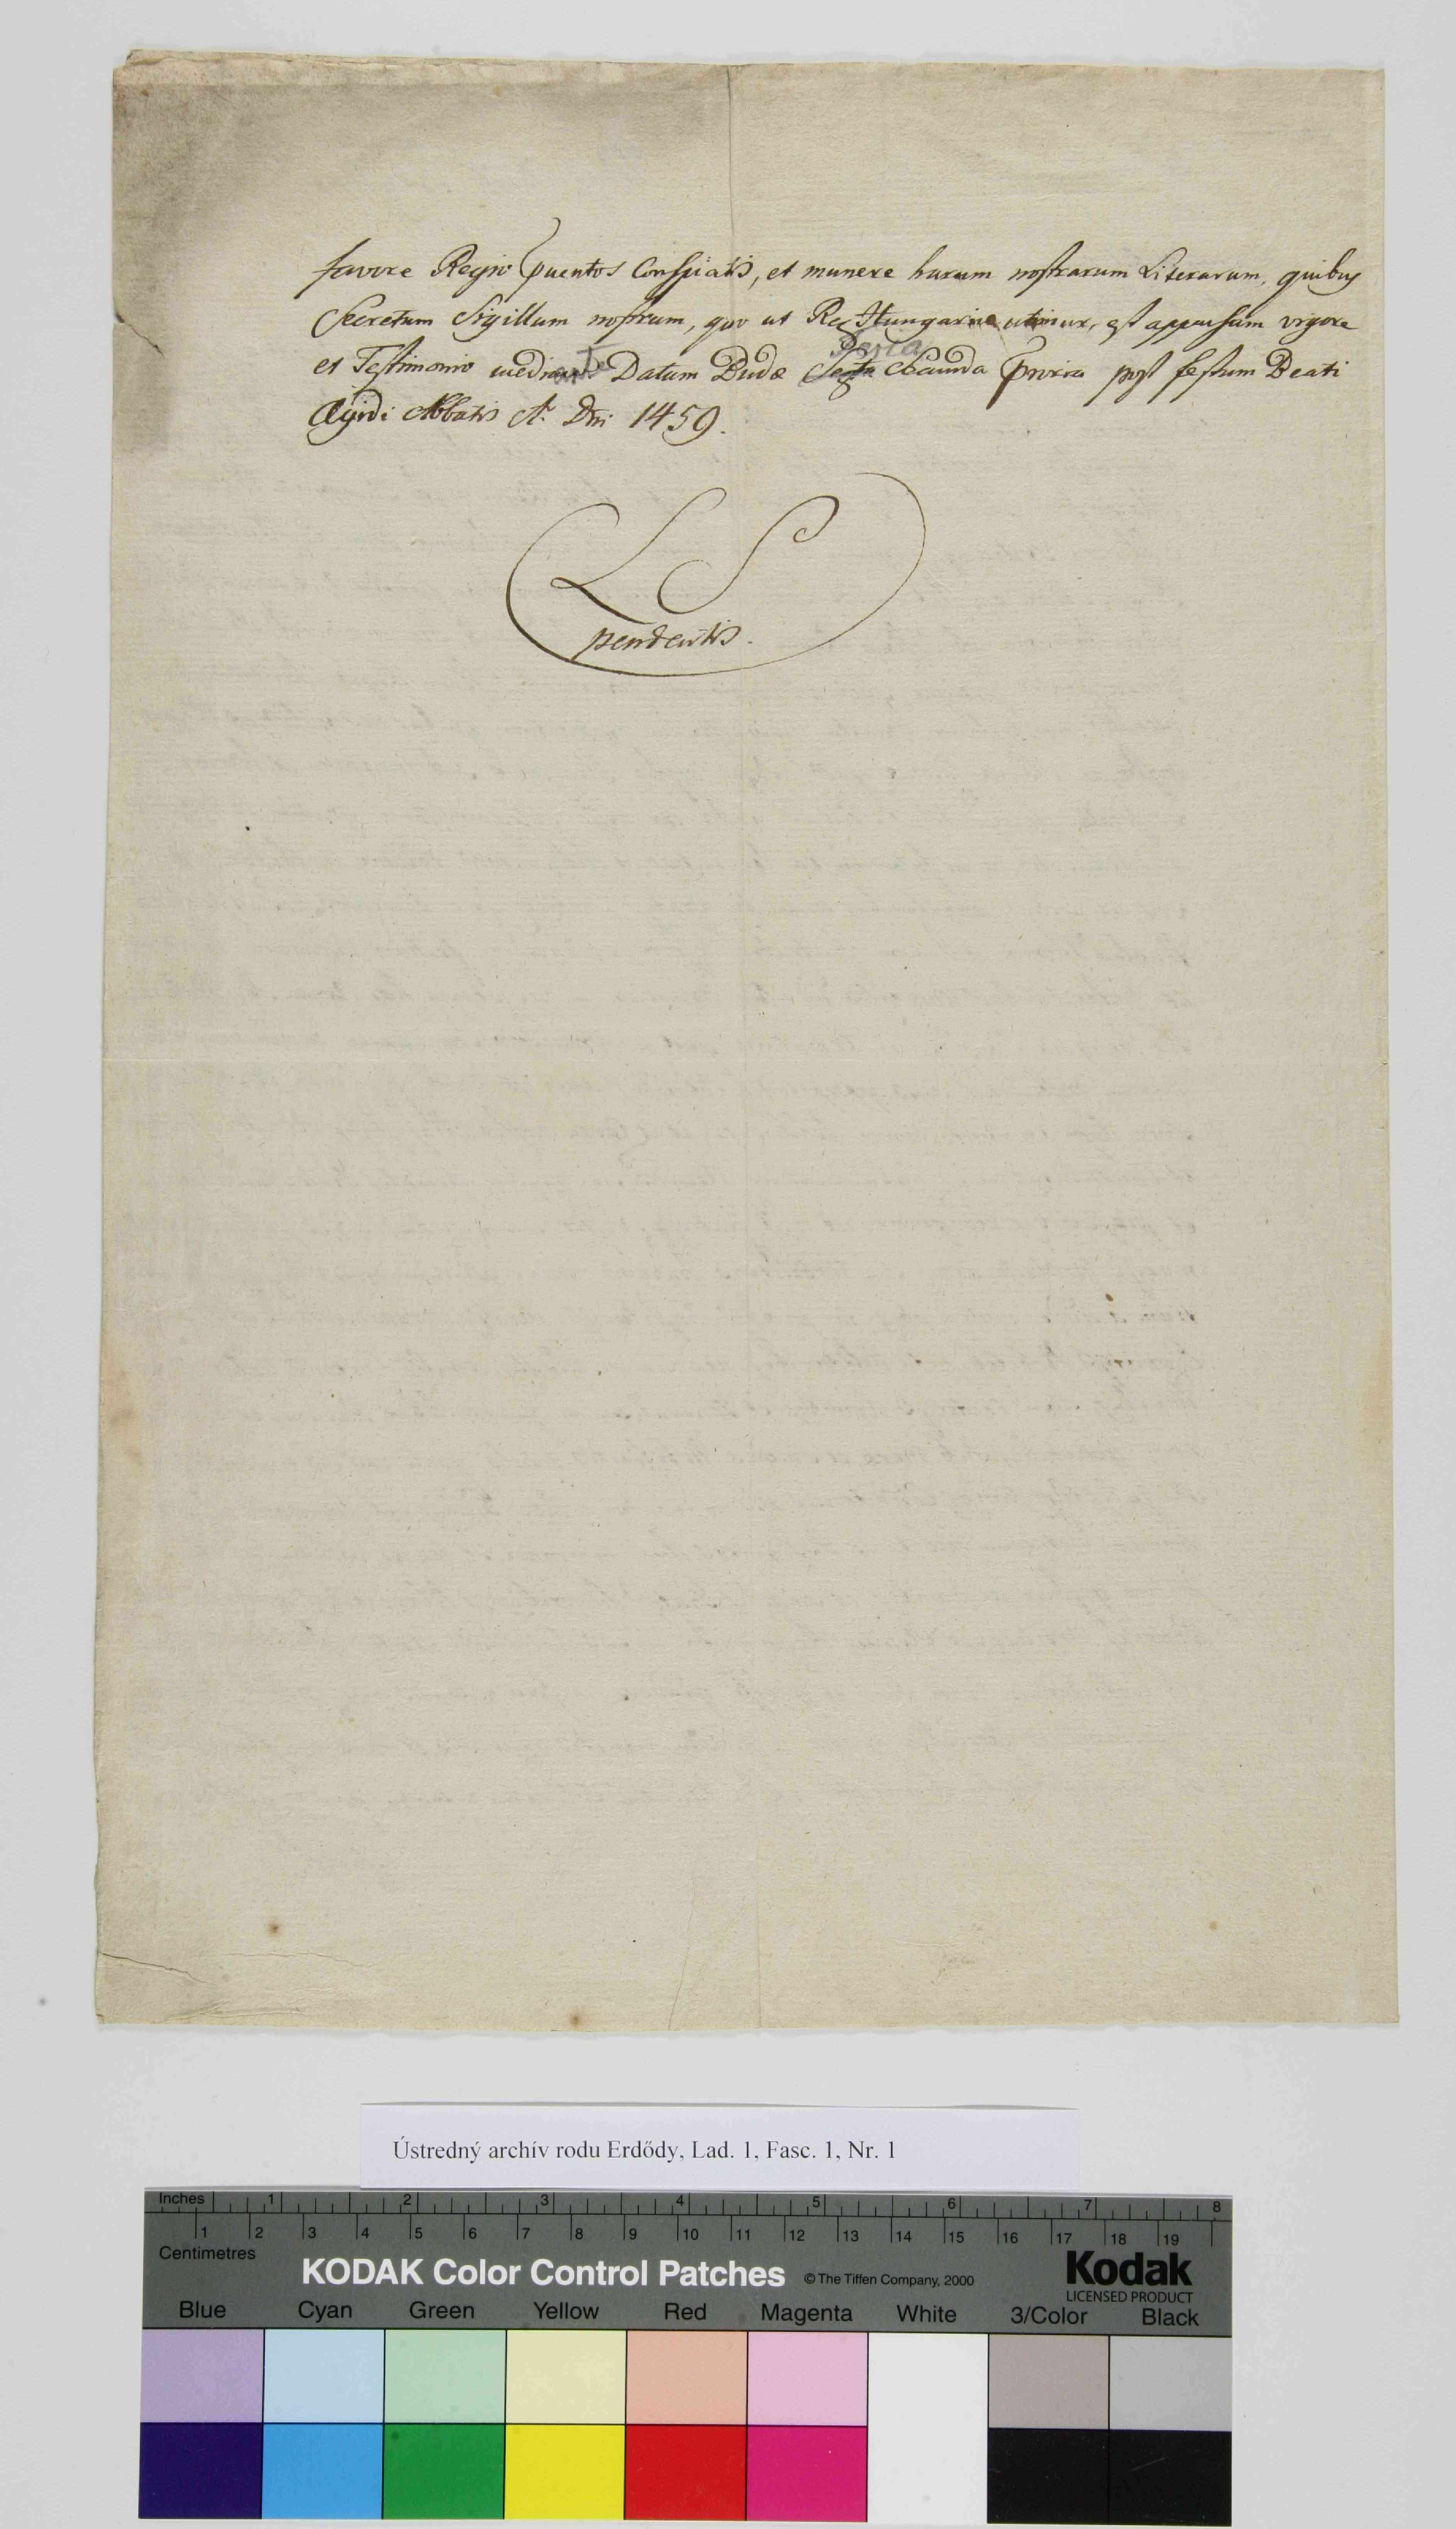 favore Regio puentos Conspiatis, et munere harum nostrarum Literarum, quibus
Secretum Sigillum nostrum, quo ut Rex Hungariae utimur, est appensum vigore
et Testimonio mediante Datum Budæ Feria Secunda proxia post festum Beati
Ægidi Abbatis A. Dni 1459.
L S
pendentis.
Ústredný archív rodu Erdődy, Lad. 1, Fasc. 1, Nr. 1
Inches 1 2 3 4 5 6 7 8
1 2 3 4 5 6 7 8 9 10 11 12 13 14 15 16 17 18 19
Centimetres
KODAK Color Control Patches © The Tiffen Company, 2000 Kodak
LICENSED PRODUCT
Blue Cyan Green Yellow Red Magenta White 3/Color Black